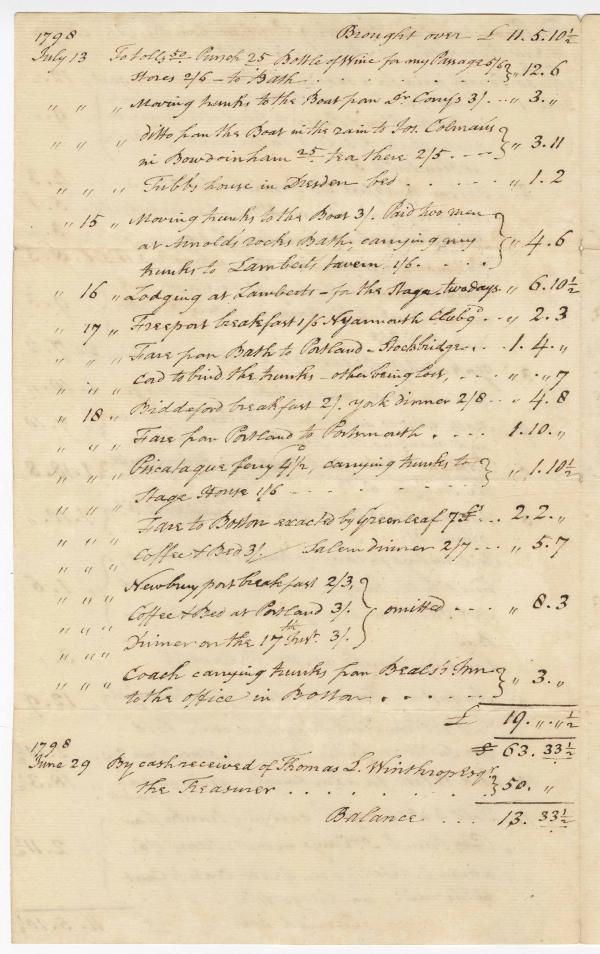 1798 Brought over £ 11. 5. 10½
July 13 To toll, 50 Punch 25 Bottle of Wine for my Passage 5/6
stores 2/6 – to Bath . . . . . . . } „ 12. 6
„ „ „ Moving trunks to the Boat from Dr Cony's 3/. . . „ 3. „
„ „ „ ditto from the Boat in the rain to Jos. Colman's
in Bowdoinham 25 tea there 2/5 . . . . } „ 3. 11
„ „ „ Tubbs house in Dresden bed . . . . . . „ 1. 2
„ 15 „ Moving trunks to the Boat 3/. Paid two men
at Arnold's rocks Bath, carrying my
trunks to Lambert's tavern. 1/6 . . . . . } „ 4. 6
„ 16 „ Lodging at Lamberts – for the Stage two days „ 6. 10½
„ 17 „ Freeport breakfast 1/6 N. yarmouth Club 9d . . „ 2. 3
„ „ „ Fare from Bath to Portland – Stockbridge . . . 1. 4. „
„ „ „ Cord to bind the trunks – other being lost, . . . „ . „ 7
„ 18 „ Biddeford breakfast 2/. york dinner 2/8 . . . „ 4. 8
„ „ „ Fare from Portland to Portsmouth . . . . 1. 10. „
„ „ „ Piscataqua ferry 4½, carrying trunks to
Stage House 1/6 . . . . . . . . . } „ 1. 10½
„ „ „ Fare to Boston exacted by Greenleaf 7$ . . . 2. 2. „
„ „ „ Coffee & Bed 3/. / Salem dinner 2/7 . . . „ 5. 7
„ „ „ Newburyport breakfast 2/3,
„ „ „ Coffee & Bed at Portland 3/. } omitted . . . . „ 8. 3
„ „ „ Dinner on the 17th Inst. 3/.
„ „ „ Coach carrying trunks from Beals's Inn
to the office in Boston . . . . . . } „ 3. „
£ 19. „. „½
$ 63. 33½
1798
June 29 By cash received of Thomas L. Winthrop Esqr
the Treasurer . . . . . . . . } 50. „
Balance . . . . 13. 33½